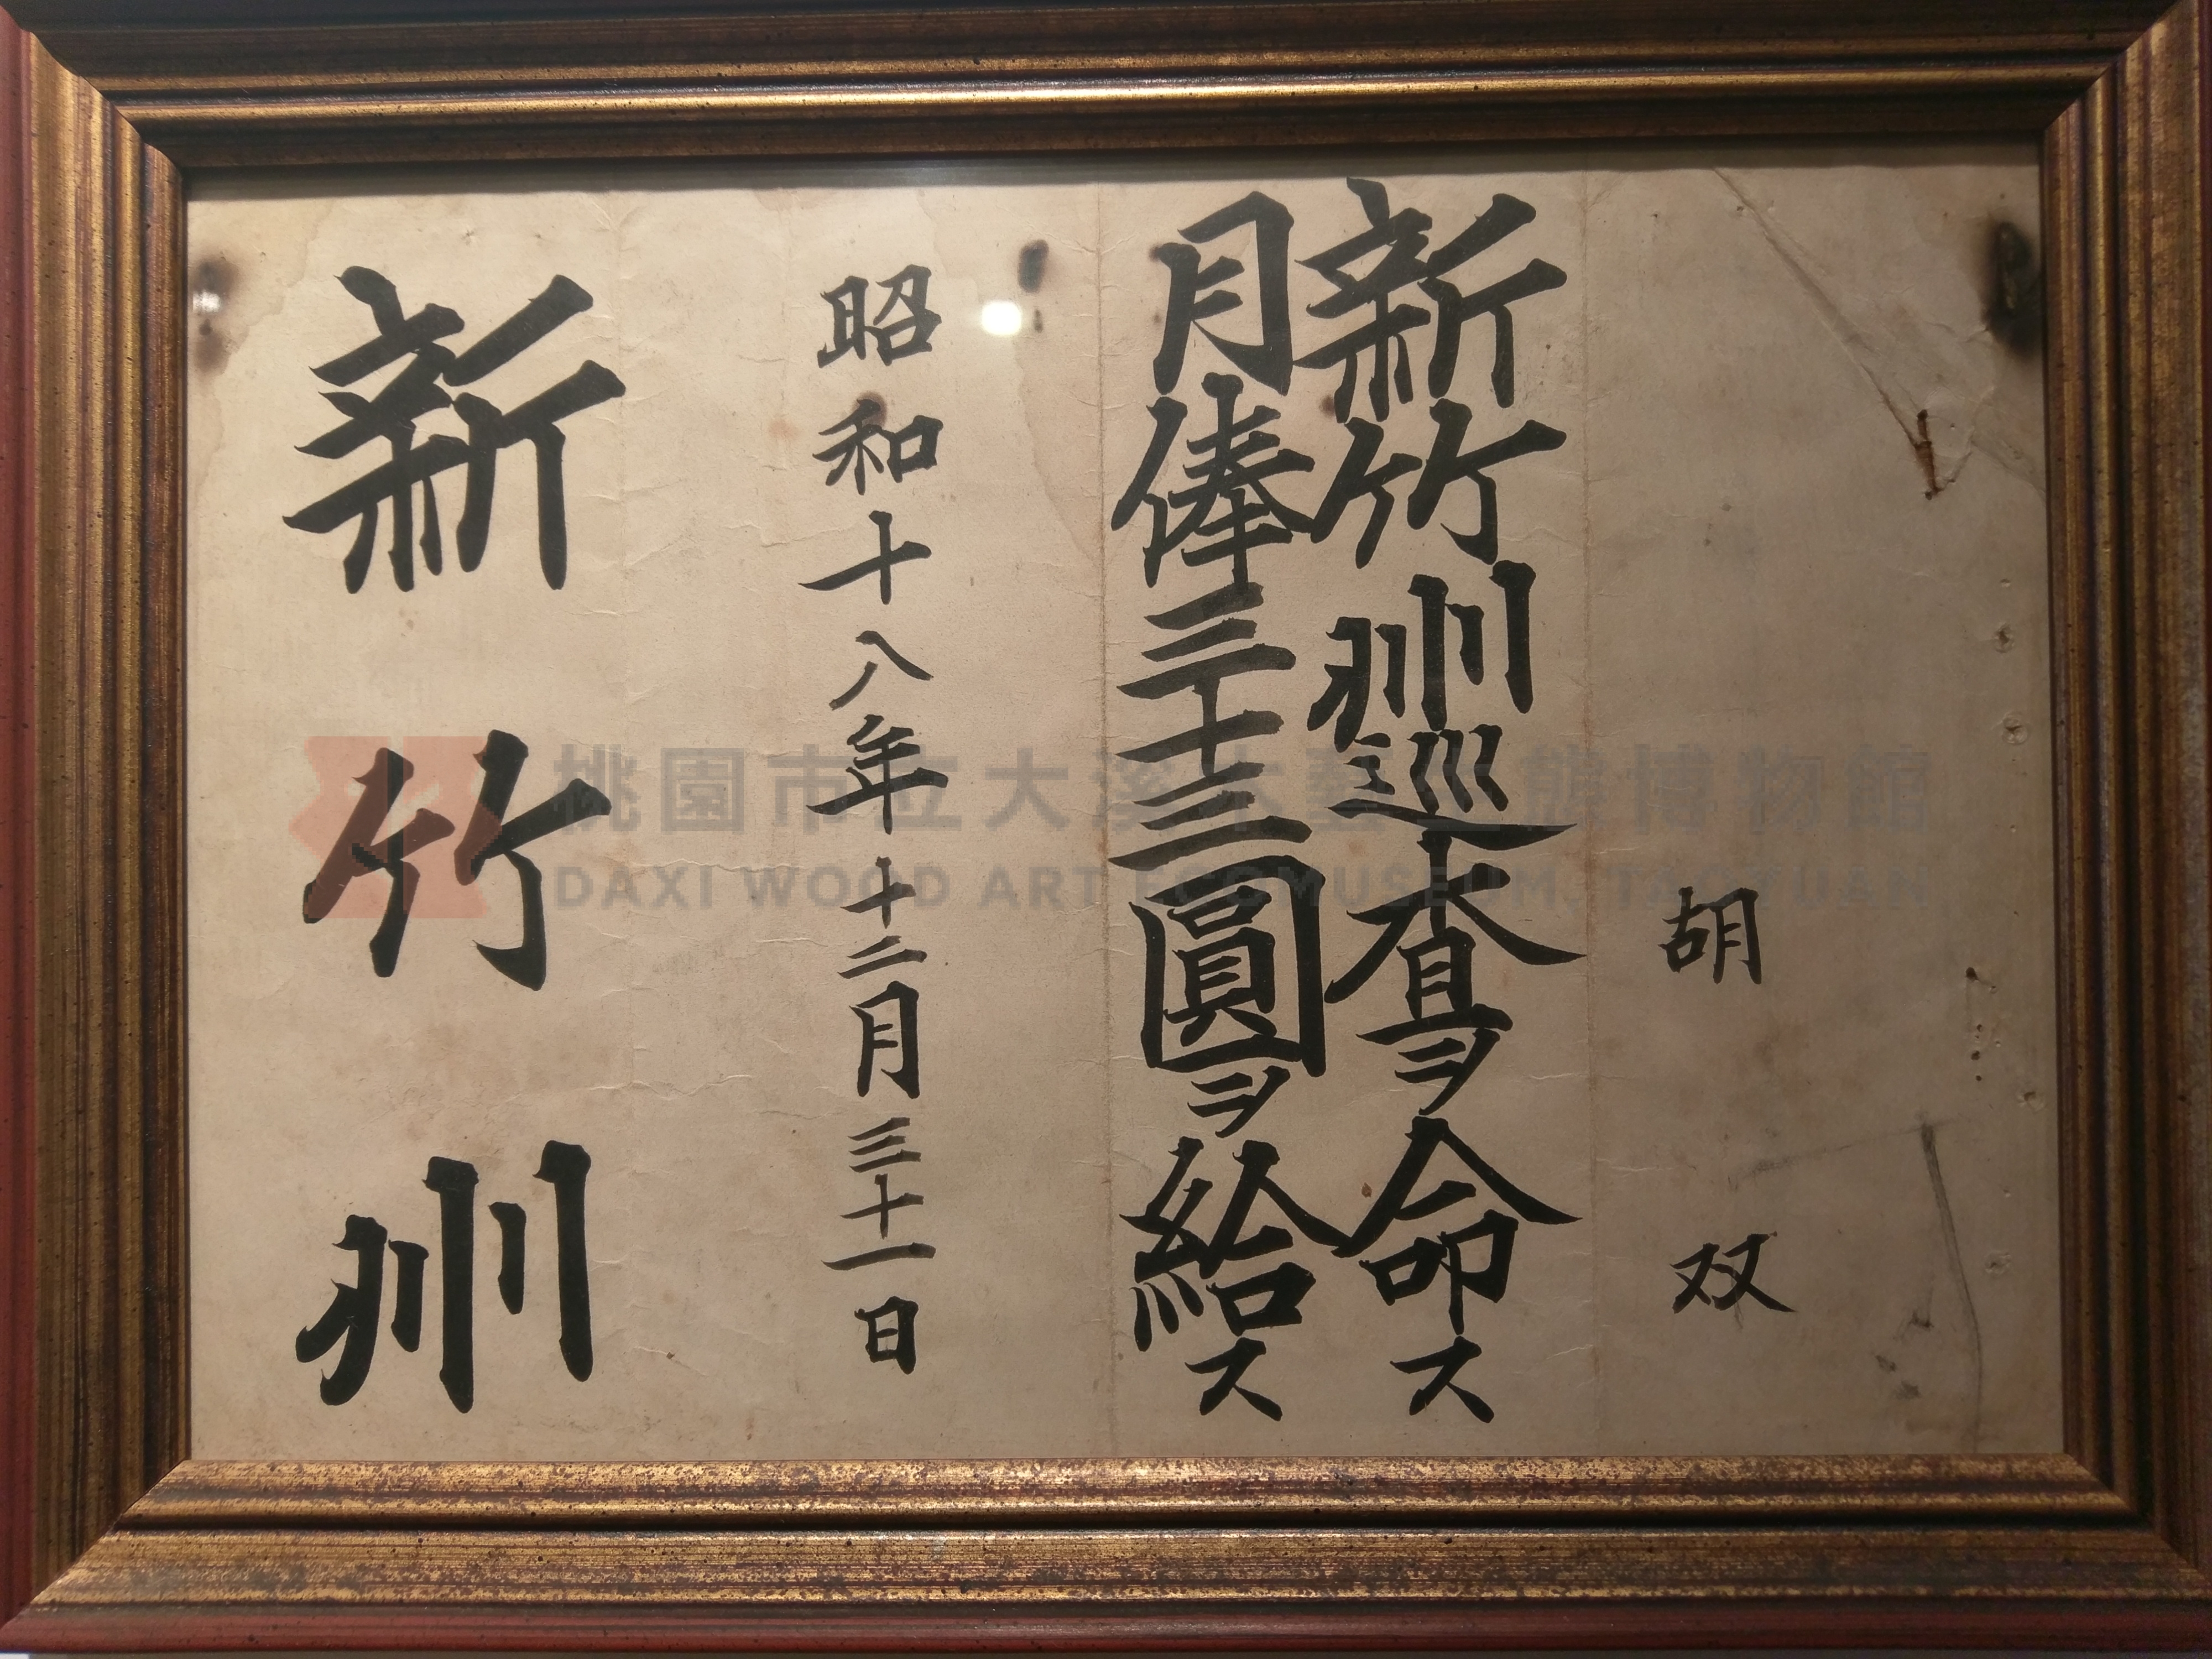 胡 双
新竹州巡査ヲ命ス
月俸三十三圓ヲ給ス
昭和十八年十二月三十一日
新竹州
桃園市立大溪木藝生態博物館
DAXI WOOD ART ECOMUSEUM, TAOYUAN